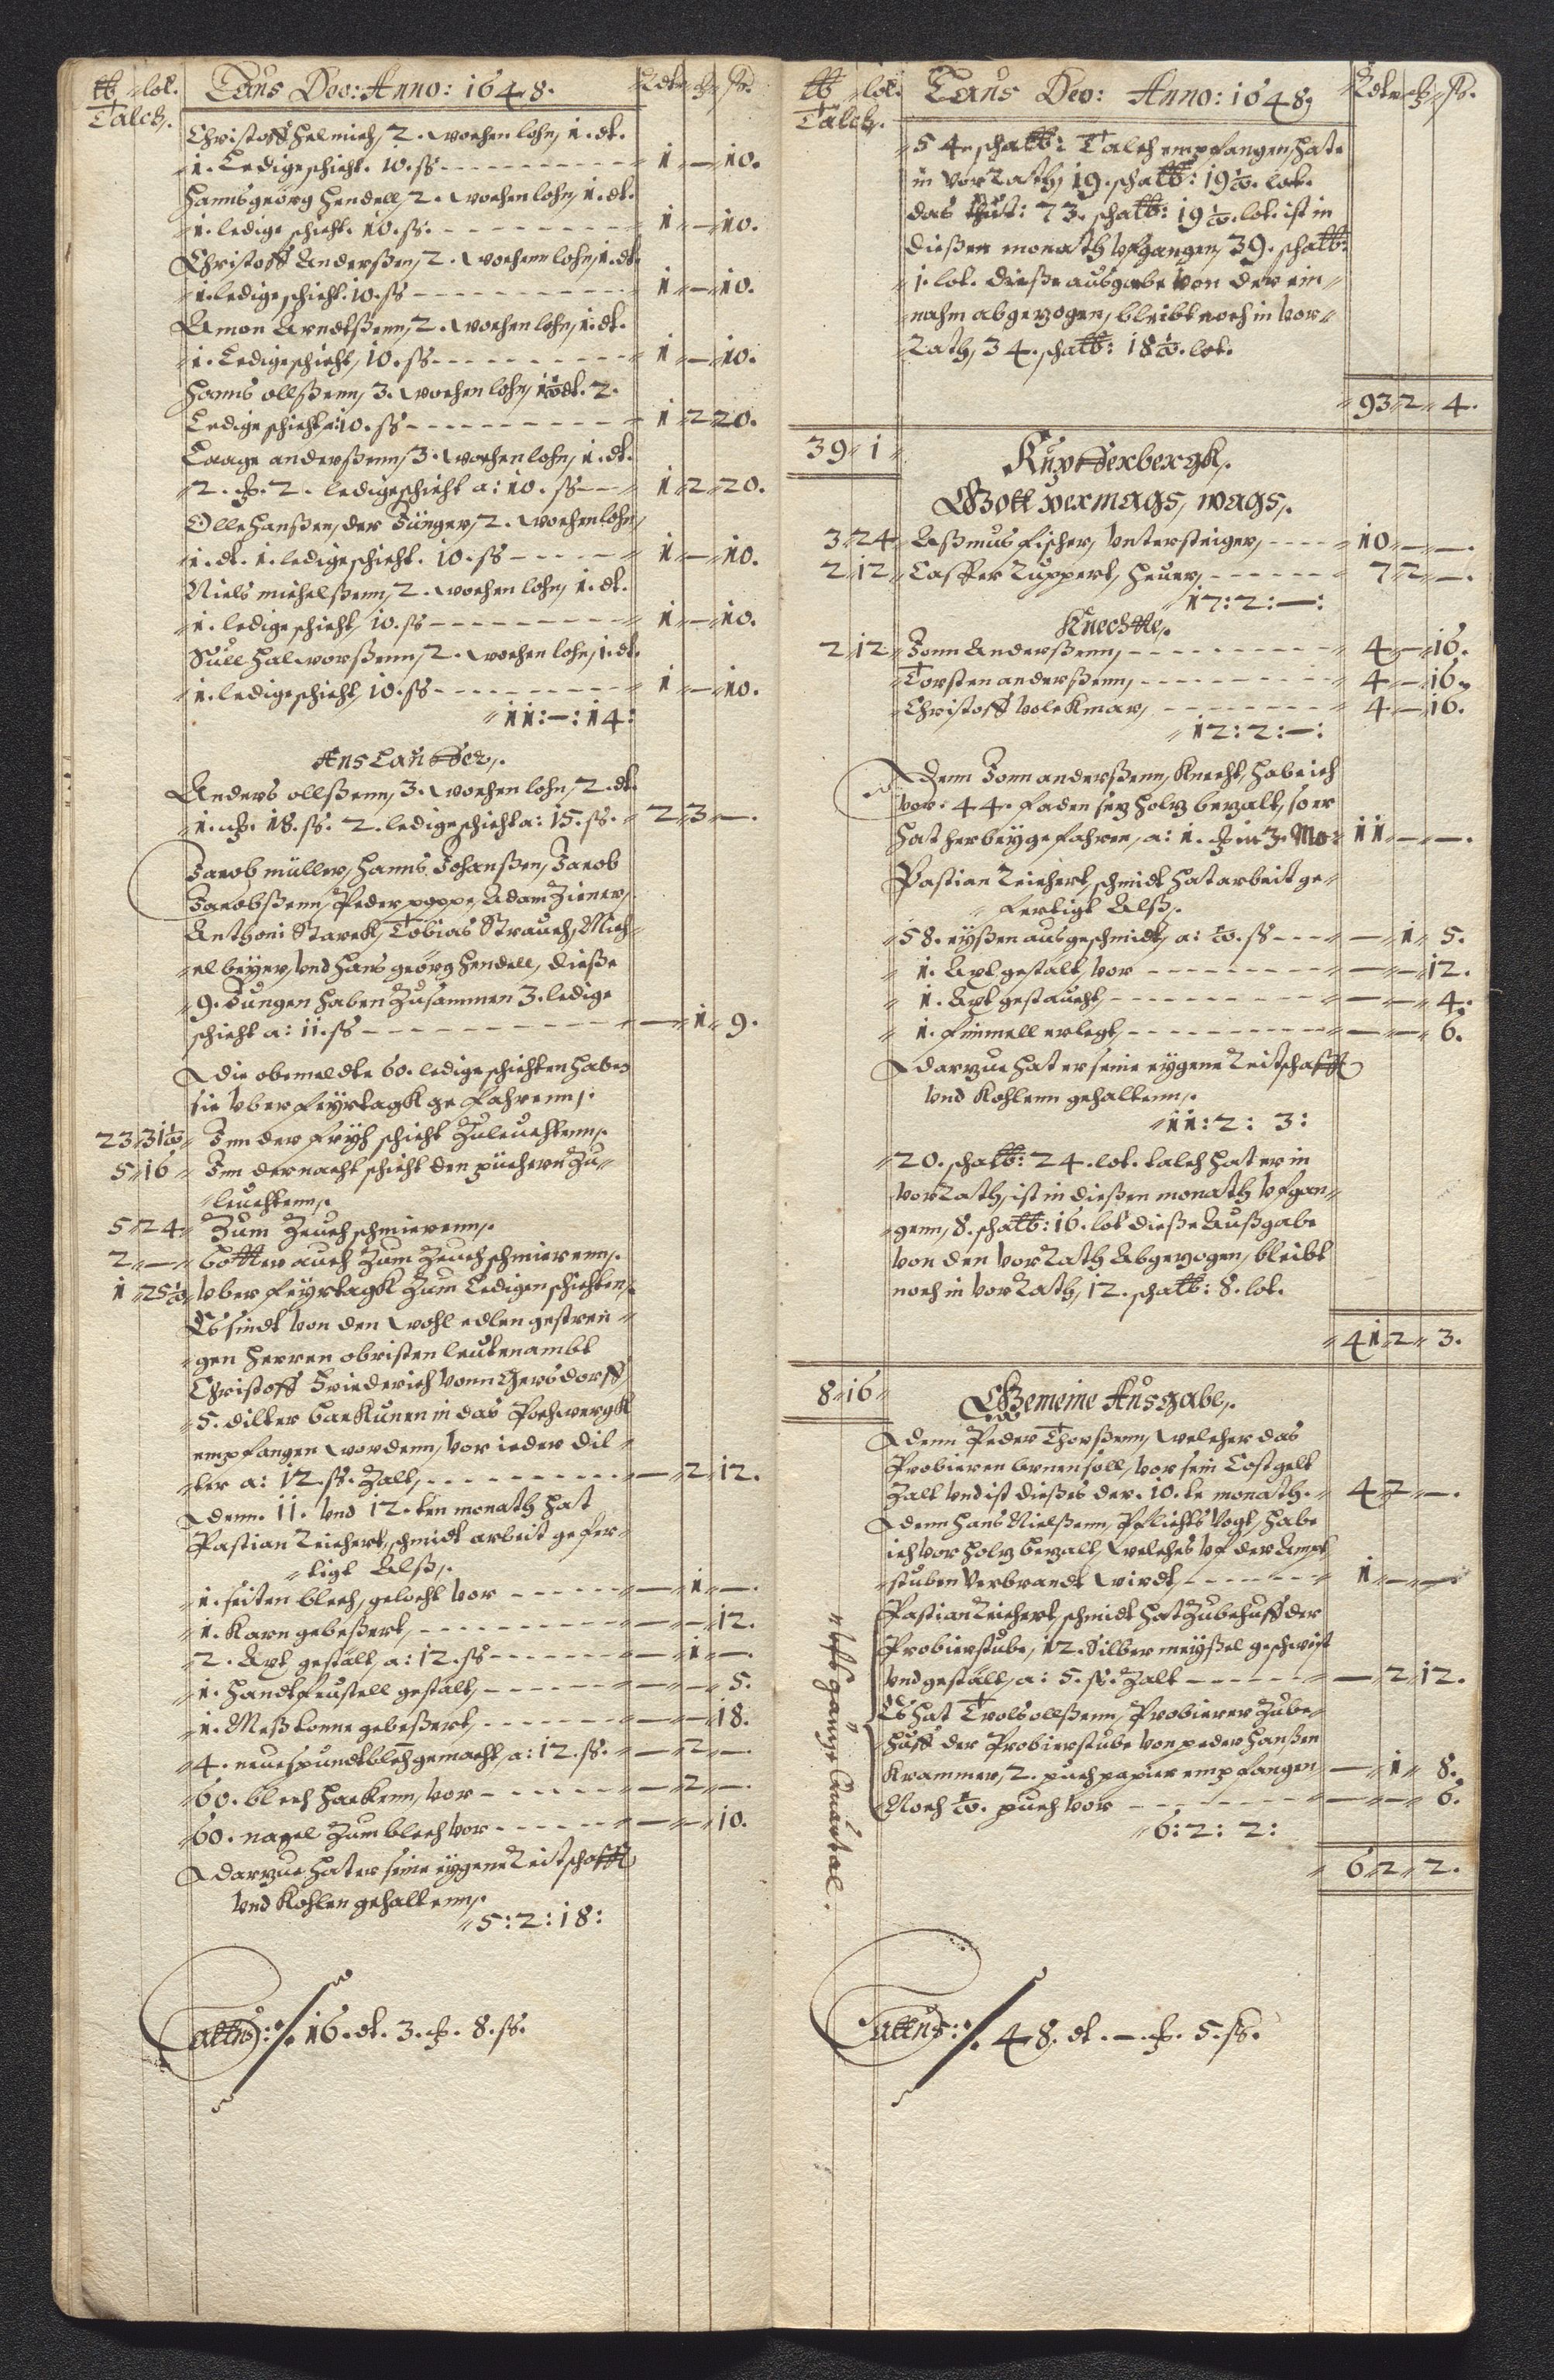 ℔ lot. Laus Deo: Anno: 1648. Rdt. ȝ ß.
Talch.
Christoff Helmich, 2. wochen lohn, 1. dt.
1. Ledige schicht. 10. ß 1 — 10.
Hanns georg Hendell, 2. wochen lohn, 1. dt.
1. ledige schicht. 10. ß. 1 — 10.
Christoff Anderßen, 2. wochenn lohn, 1. dt.
1. ledige schicht. 10. ß 1 — 10.
Amon Arndtßenn, 2. wochen lohn, 1. dt.
1. Ledige schicht, 10. ß 1 — 10.
Hanns ollßenn, 3. wochen lohn, 1½ dt. 2.
Ledige schicht, a: 10. ß 1 2 20.
Laage anderßenn, 3. wochen lohn, 1. dt.
2. ȝ. 2. ledige schicht a: 10. ß 1 2 20.
Olle Hanßen, der Jünger, 2. wochen lohn,
1. dt. 1. ledige schicht. 10. ß 1 — 10.
Niels michelßenn, 2. wochen lohn, 1. dt.
1. ledige schicht, 10. ß 1 — 10.
Süll Halworßenn, 2. wochen lohn, 1. dt.
1. ledige schicht, 10. ß 1 — 10.
11: —: 14:
Auslauffer,.
Anders ollßenn, 3. wochen lohn, 2. dt.
1. ȝ. 18. ß. 2. ledige schicht a: 15. ß. 2 3 —.
Jacob müller, Hanns Johanßen, Jacob
Jacobßenn, Peder poppe, Adam Ziener,
Anthoni Starck, Tobias Strauch, Mich¬
el beyer, vnd Hans georg Hendell, dieße
9. Jungen haben Zusammen 3. ledige
schicht a: 11. ß — 1 9.
die obemeldte 60. ledige schichten haben
sie vber feyrtagk gefahrenn,.
23 31½ Inn der fryh schicht Zuleuchtenn,.
5 16 Inn der nacht schicht den püchern Zu¬
leuchtenn,.
5 24 Zum Zeuch schmierenn,.
2 — botter auch Zum Zeuch schmierenn,.
1 25½ vber feyrtagk Zum Ledigen schichten,.
Es sindt von den wohl edlen gestren¬
gen Herren obristen leutenambt
Christoff Friederich vonn Gersdorff,
5. dilter backunen in das Pochwergk
empfangen wordenn, vor ieder dil¬
ter a: 12. ß. Zalt, — 2 12.
denn. 11. vnd 12. ten monath hat
Pastian Reichert, schmidt arbeit gefer¬
tigt Alß,.
1. seiten blech, gelocht vor — 1 —.
1. Karn gebeßert, — — 12.
2. Axt gestält, a: 12. ß — 1 —.
1. Handtfeustell gestält, — — 5.
1. Meßtonne gebeßert, — — 18.
4. neue spundtblech gemacht, a: 12. ß. — 2 —.
60. blech hackenn, vor — 2 —.
60. nagel Zum blech vor — — 10.
darzue hat er seine eygene Reitschafft
vnd Kohlen gehaltenn,.
5: 2: 18:
Lattus: 16. dt. 3. ȝ. 8. ß.
℔ lot. Laus Deo: Anno: 1648. Rdt. ȝ ß.
Talch.
54. scha℔: Talch empfangen, hate
in vorRath, 19. scha℔: 19½. lot.
das thut: 73. scha℔: 19½. lot. ist in
dießen monath vfgangen, 39. scha℔:
1. lot. dieße ausgabe von der ein¬
nahm abgezogen, bleibt noch in vor¬
Rath, 34. scha℔: 18½. lot.
93 2 4.
39 1
Kupfferbergk,.
Gott vermags, wags,.
3 24 Aßmus fischer, vntersteiger, 10 — —.
2 12 Casper Ruppert, heuer, 7 2 —.
17: 2: —:
Knechtte,.
2 12 Jonn Anderßenn, 4 — 16.
Torsten anderßenn, 4 — 16.
Christoff volckmar, 4 — 16.
12: 2: —:
Denn Jonn anderßenn, Knecht, habe ich
vor. 44. faden sez holz bezalt, so er
hat herbeyge fahren, a: 1. ȝ in 3. Mo: 11 — —.
Pastian Reichert, schmidt hat arbeit ge¬
fertigt Alß,.
58. eyßen ausgeschmidt, a: ½. ß — 1 5.
1. Axt gestält, vor — — 12.
1. Axt gestaucht, — — 4.
1. fimmell erlegt, — — 6.
darzue hat er seine eygene Reitschafft
vnd Kohlenn gehaltenn,.
11: 2: 3:
20. scha℔: 24. lot. talch hat er in
vorRath, ist in dießen monath vfgan¬
genn, 8. scha℔: 16. lot dieße Außgabe
von den vorRath Abgezogen, bleibt
noch in vorRath, 12. scha℔: 8. lot.
41 2 3.
8 16
Gemeine Ausgabe,.
denn Peder Thorßenn, welcher das
Probieren lernen soll, vor sein Costgelt
Zalt vnd ist dießes der. 10. te monath. 4 2 —.
denn Hans Nielßenn, Pflichts Vogt, habe
ich vor holz bezalt, welches vf der Ampt
stuben Verbrandt wirdt, 1 — —
Pastian Reichert, schmidt hat Zubehuff der
Probierstube, 12. Silber meyßel geschweist
vnd gestält, a: 5. ß. Zalt — 2 12.
Es hat Trols ollßenn, Probierer Zube¬
huff der Probierstube von peder Hanßen
Krammer, 2. puch papier empfangen — 1 8.
Noch ½. puch vor — — 6.
6: 2: 2:
vfs gantze Quartal.
6 2 2.
Lattus: 48. dt. —. ȝ. 5. ß.